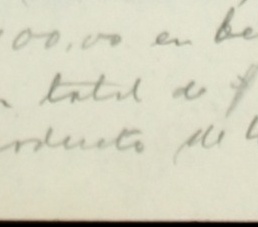 00.00 en be
total de $
oducto de l